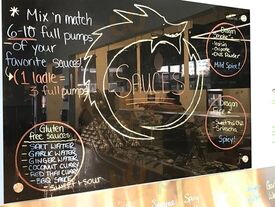 Mix 'n match
6-10 full pumps
of your
favorite sauces!
(1 ladle =
3 full pumps)
SAUCES
Dragon
Mild Spice!
Dragon
Sriracha
Spicy!
Gluten
free sauces:
- SALT WATER
- GARLIC WATER
- GINGER WATER
- COCONUT CURRY
- RED THAI CURRY
- BBQ SAUCE
- SWEET + SOUR
Spicy